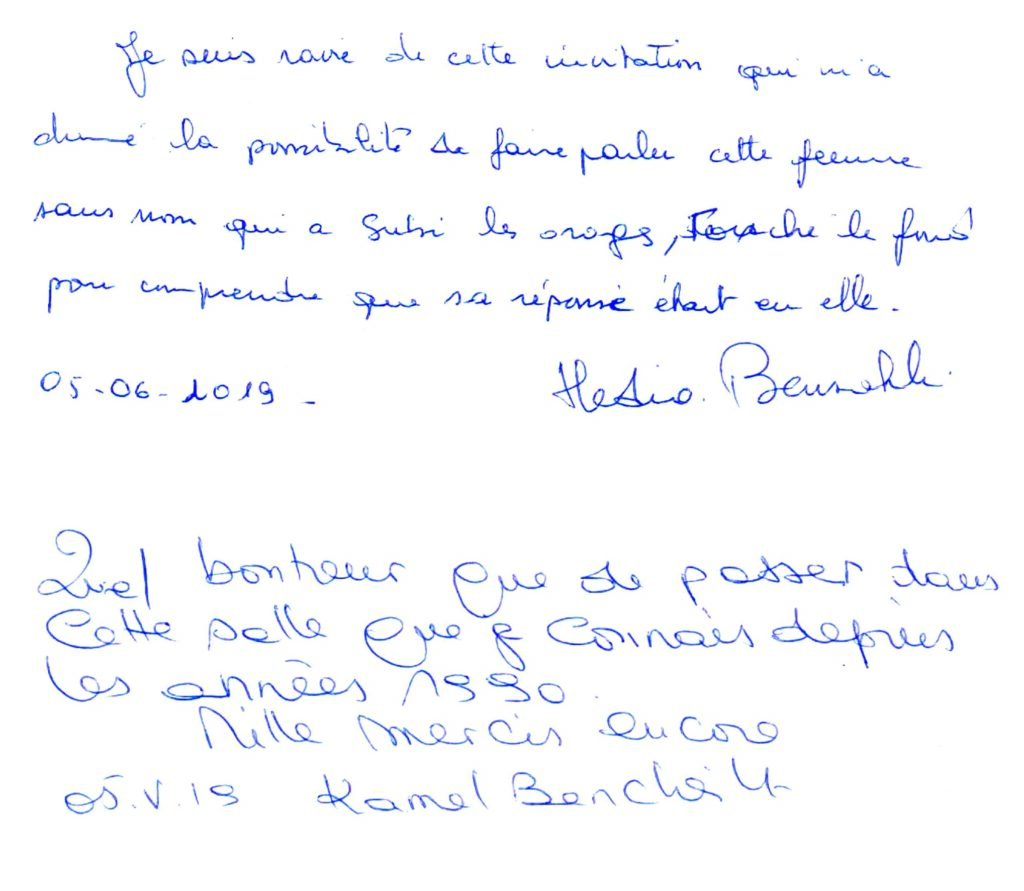 Je suis ravie de cette invitation qui m'a
donné la possibilité de faire parler cette femme
sans nom qui a subi les orages, touché le fond
pour comprendre que sa réponse était en elle.
05-06-2019 -
Quel bonheur que de passer dans
Cette salle que je connais depuis
les années 1990.
Mille mercis encore
05.V.19 Kamel Bencheikh